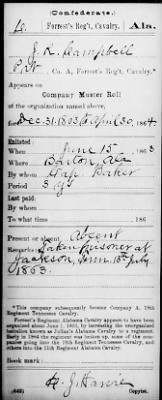 (Confederate.)
C. Forrest's Reg't, Cavalry. Ala.
J. R. Campbell
Pvt, Co. A, Forrest's Reg't, Cavalry.*
Appears on
Company Muster Roll
of the organization named above,
for Dec. 31. 1863 to April 30, 1864
Enlisted:
When June 15 1863
Where Barton, Ala
By whom Capt. Baker
Period 3 yrs
Last paid:
By whom
To what time 186
Present or absent Absent
Remarks: Taken prisoner at
Jackson, Tenn. 13th July
1863.
*This company subsequently became Company A, 18th
Regiment Tennessee Cavalry.
Forrest's Regiment Alabama Cavalry appears to have been
organized about June 1, 1863, by increasing the organization
known as Julian's Alabama Cavalry to a regiment.
Early in 1864 the regiment was broken up, some of the com-
panies going into the 18th Regiment Tennessee Cavalry, and
others into the 11th Alabama Cavalry.
Book mark:
(642) Copyist.